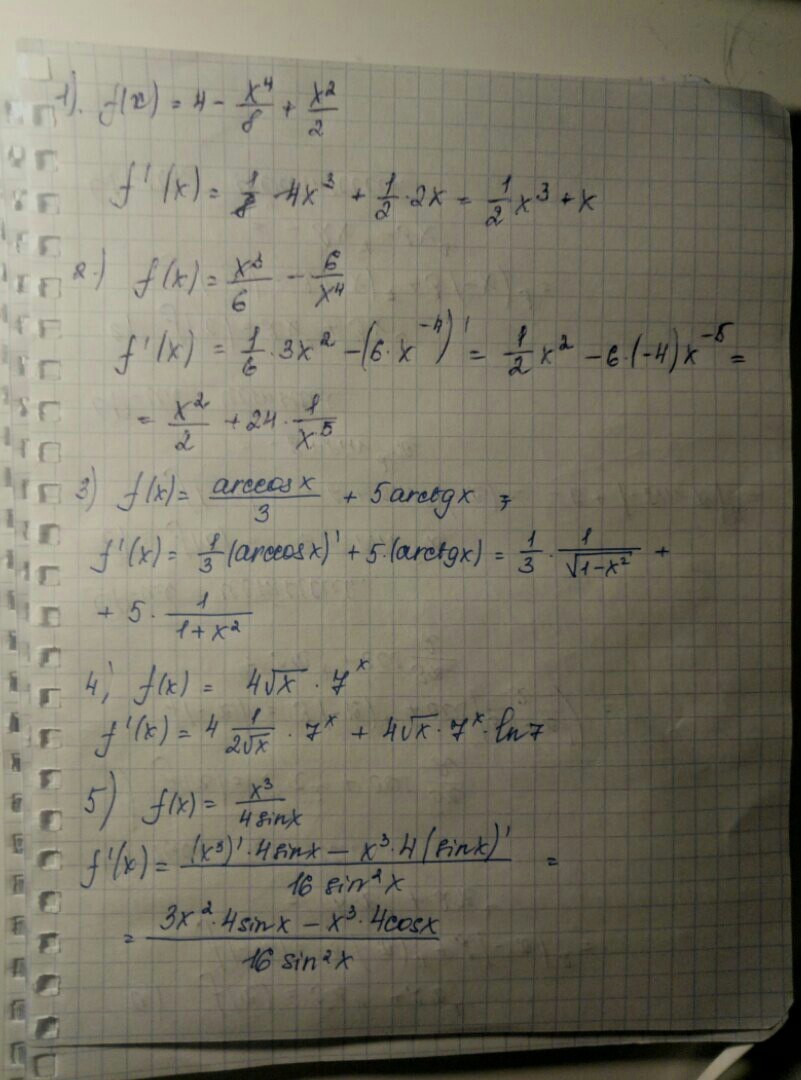 1). f(x) = 4 - x⁴/8 + x²/2
f'(x) = 1/8 · 4x³ + 1/2 · 2x = 1/2 x³ + x
2.) f(x) = x³/6 - 6/x⁴
f'(x) = 1/6 · 3x² - (6 · x⁻⁴)' = 1/2 x² - 6 · (-4)x⁻⁵ =
= x²/2 + 24 · 1/x⁵
3) f(x) = arccosx/3 + 5arctgx ;
f'(x) = 1/3 (arccosx)' + 5 · (arctgx) = 1/3 · 1/√(1-x²) +
+ 5 · 1/(1+x²)
4) f(x) = 4√x · 7ˣ
f'(x) = 4 1/(2√x) · 7ˣ + 4√x · 7ˣ · ln7
5) f(x) = x³/(4sinx)
f'(x) = ((x³)' · 4sinx - x³ · 4(sinx)')/(16 sin²x) =
= (3x² · 4sinx - x³ · 4cosx)/(16 sin²x)